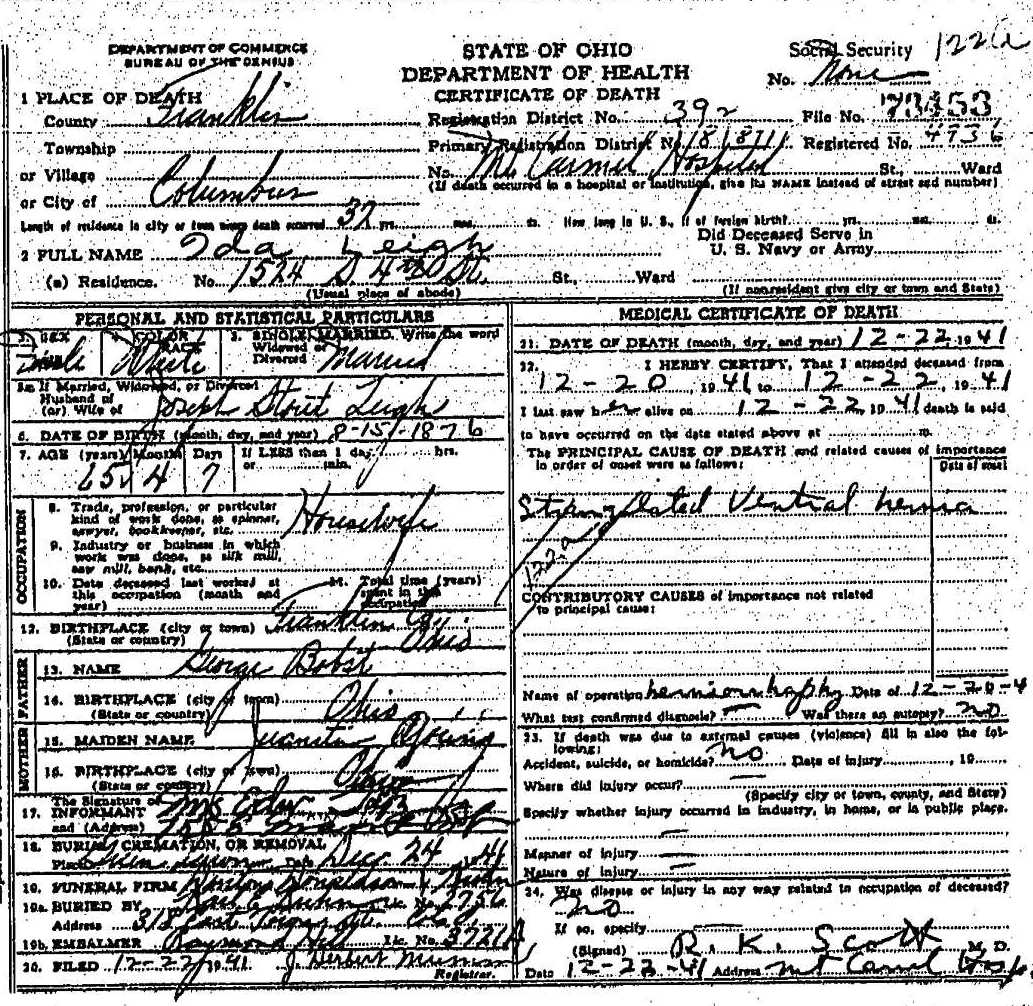 DEPARTMENT OF COMMERCE
BUREAU OF THE CENSUS
STATE OF OHIO
DEPARTMENT OF HEALTH
CERTIFICATE OF DEATH
Social Security 122a
No. None
1 PLACE OF DEATH
County Franklin
Registration District No. 392 File No. 73453
Township
Primary Registration District No. Registered No. 4936
or Village
No. Mt Carmel Hospital St., Ward
(If death occurred in a hospital or institution, give its NAME instead of street and number)
or City of Columbus
Length of residence in city or town where death occurred 37 yrs. mos. ds. How long in U. S., if of foreign birth? yrs. mos. ds.
2 FULL NAME Ida Leigh
Did Deceased Serve in
U. S. Navy or Army
(a) Residence. No. 1524 S. 4th St. St., Ward
(Usual place of abode) (If nonresident give city or town and State)
PERSONAL AND STATISTICAL PARTICULARS
3. SEX 4. COLOR OR RACE 5. SINGLE, MARRIED, Write the word
Widowed or
Divorced Married
White
5a. If Married, Widowed, or Divorced
Husband of
(or) Wife of Joseph Stout Leigh
6. DATE OF BIRTH (month, day, and year) 8-15-1876
7. AGE (years) Months Days If LESS than 1 day, hrs.
or min.
65 4 7
OCCUPATION
8. Trade, profession, or particular
kind of work done, as spinner,
sawyer, bookkeeper, etc. Housewife
9. Industry or business in which
work was done, as silk mill,
saw mill, bank, etc.
10. Date deceased last worked at
this occupation (month and
year)
11. Total time (years)
spent in this
occupation
12. BIRTHPLACE (city or town) Franklin
(State or country) Ohio
FATHER
13. NAME George Bobst
14. BIRTHPLACE (city or town)
(State or country) Ohio
MOTHER
15. MAIDEN NAME Juanita Young
16. BIRTHPLACE (city or town)
(State or country) Ohio
17. The Signature of
INFORMANT Mrs
and (Address)
18. BURIAL, CREMATION, OR REMOVAL
Place Date Dec 24 1941
19. FUNERAL FIRM
19a. BURIED BY Lic. No.
Address 318 East
19b. EMBALMER Raymond Lic. No. 3721A
20. FILED 12-22 1941 J Herbert
Registrar.
MEDICAL CERTIFICATE OF DEATH
21. DATE OF DEATH (month, day, and year) 12-22 1941
22. I HERBY CERTIFY, That I attended deceased from
12-20 1941 to 12-22, 1941
I last saw her alive on 12-22 1941 death is said
to have occurred on the date stated above at m.
The PRINCIPAL CAUSE OF DEATH and related causes of importance
in order of onset were as follows:
Date of onset
Strangulated Ventral hernia
122a
CONTRIBUTORY CAUSES of importance not related
to principal cause:
Name of operation herniorrhaphy Date of 12-20-4
What test confirmed diagnosis? Was there an autopsy? no
23. If death was due to external causes (violence) fill in also the following:
Accident, suicide, or homicide? no Date of injury 19
Where did injury occur?
(Specify city or town, county, and State)
Specify whether injury occurred in industry, in home, or in public place.
Manner of injury
Nature of injury
24. Was disease or injury in any way related to occupation of deceased?
no
If so, specify
(Signed) R. K. Scott M. D.
Date 12-22-41 Address Mt Carmel Hosp.